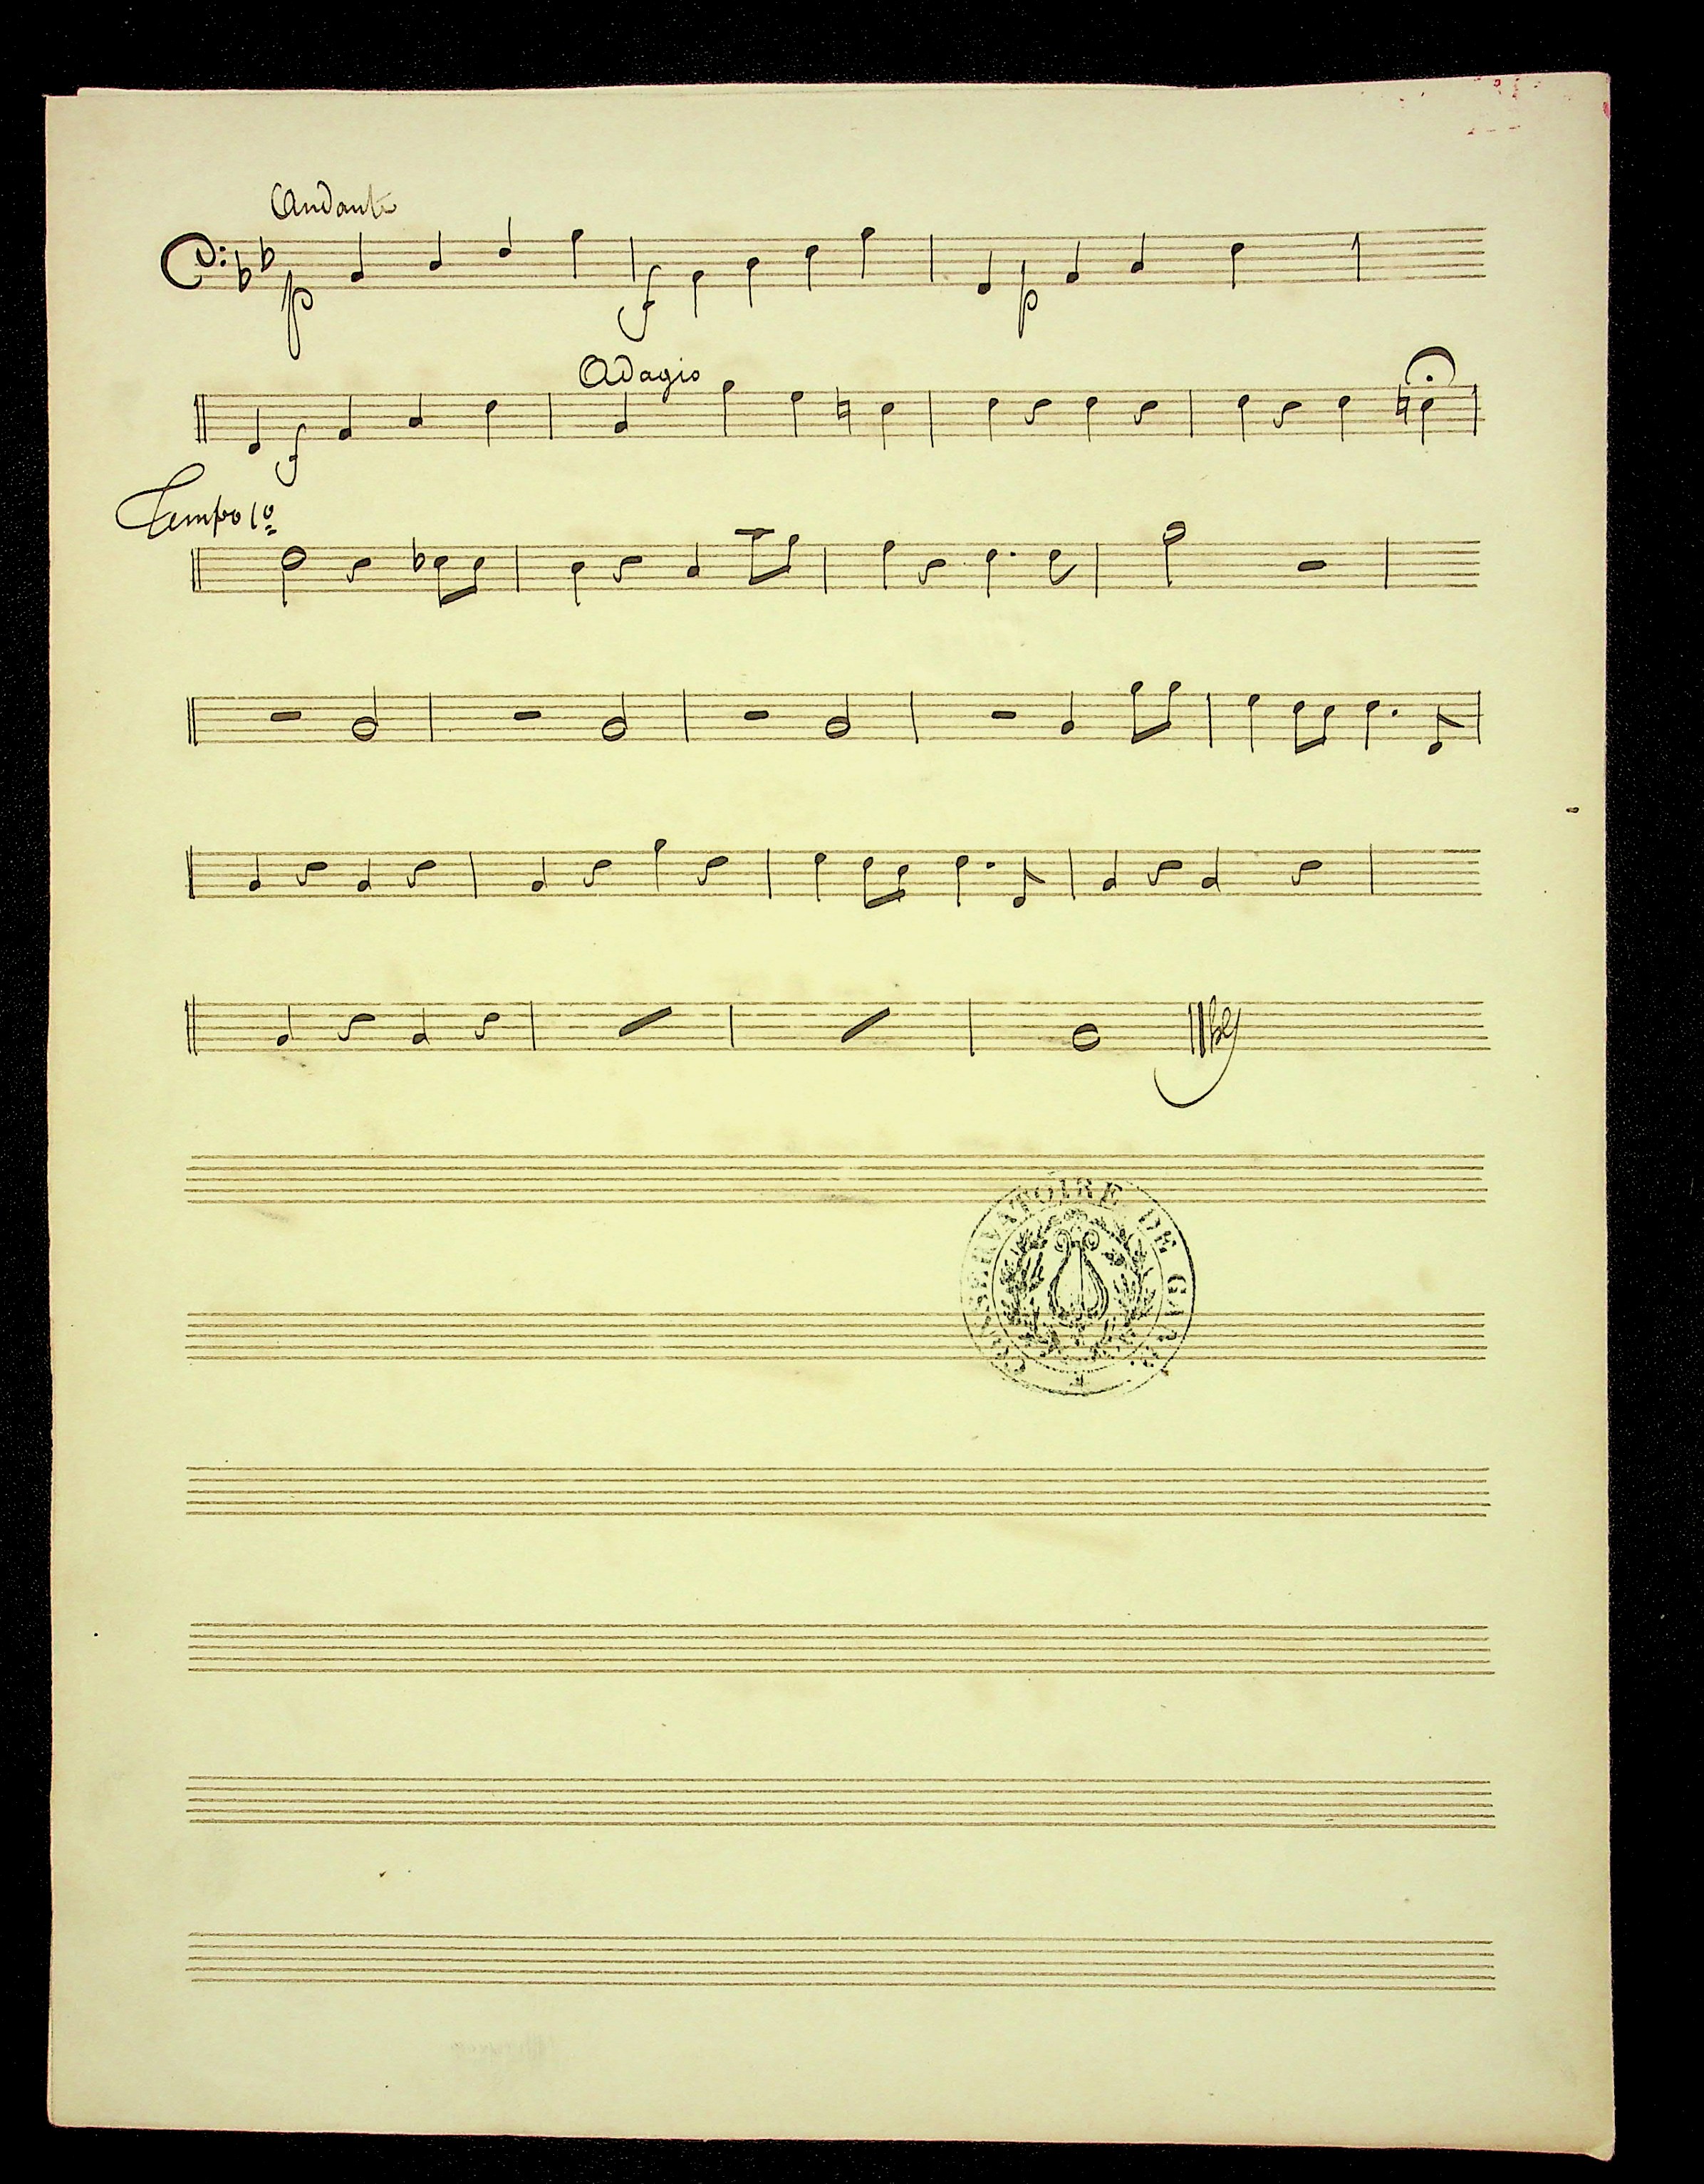 Andante
p f p
Adagio
f
Tempo 1º
CONSERVATOIRE DE GAND